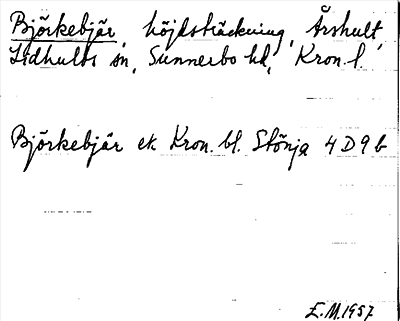 Björkebjär, höjdsträckning, Årshult,
Lidhults sn, Sunnerbo hd, Kron. l.
Björkebjär ek Kron. bl. Stönja 4D9b
E.M.1957